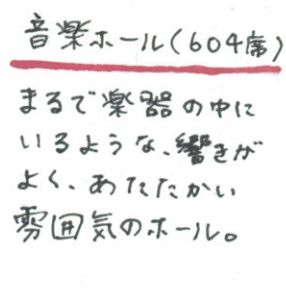 音楽ホール(604席)
まるで楽器の中に
いるような、響きが
よく、あたたかい
雰囲気のホール。